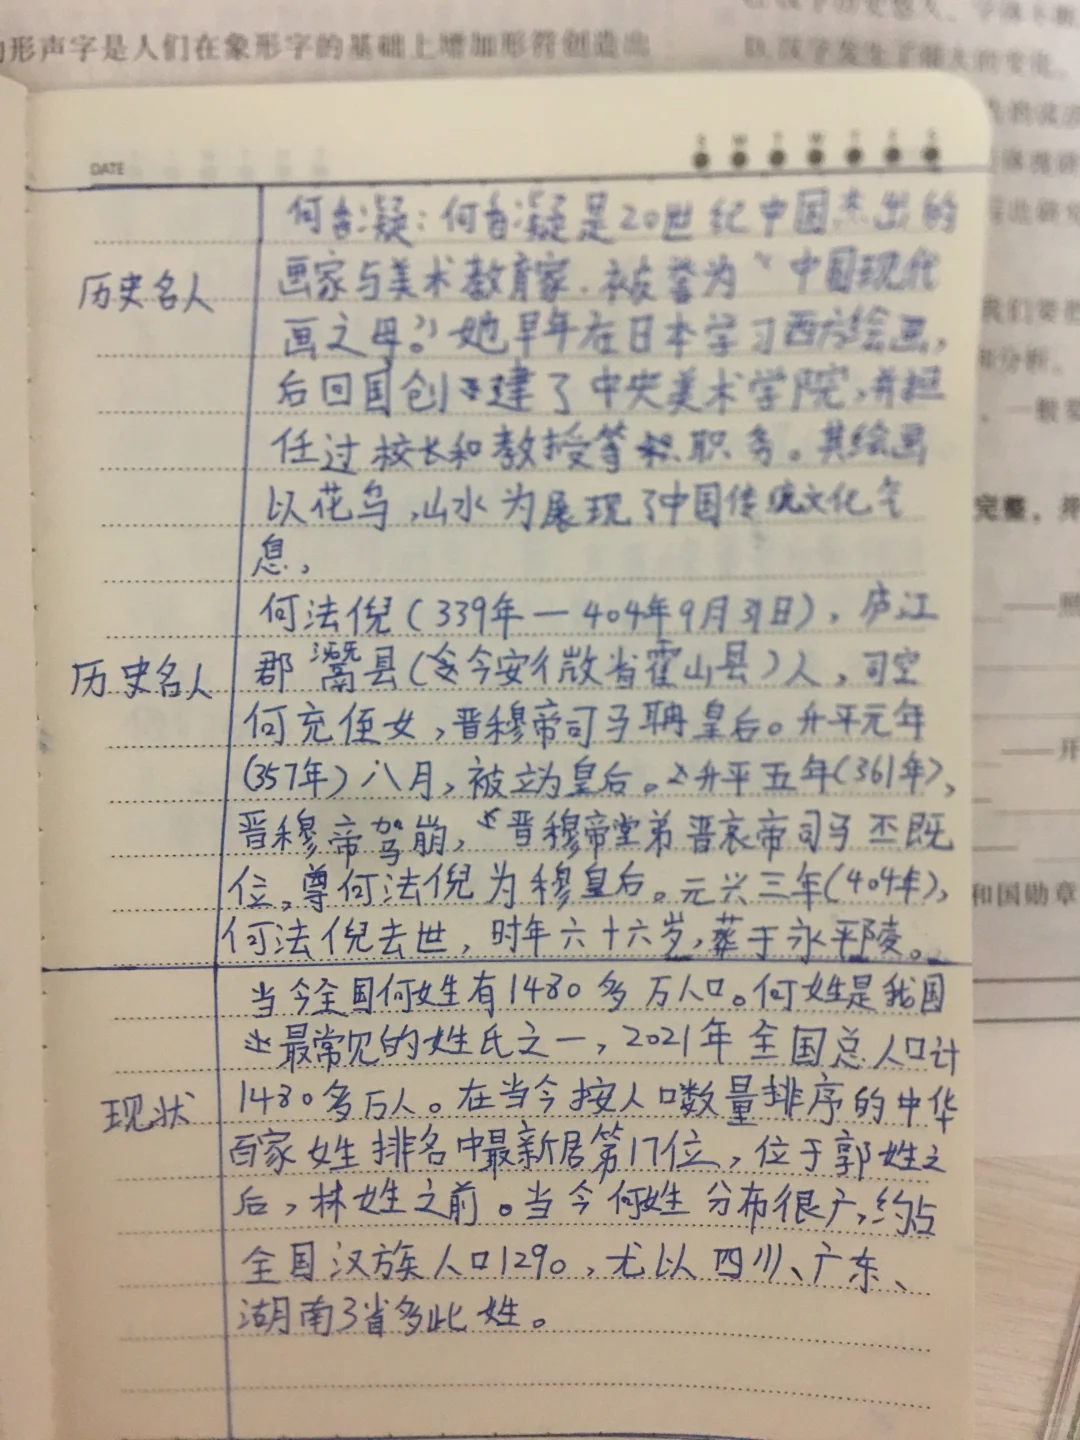 形声字是人们在象形字的基础上增加形符创造出
DATE
S M T W T F S
历史名人
何香凝:何香凝是20世纪中国杰出的
画家与美术教育家.被誉为“中国现代
画之母。”她早年在日本学习西方绘画,
后回国创建了中央美术学院,并担
任过校长和教授等职务。其绘画
以花鸟,山水为展现了中国传统文化气
息,
历史名人
何法倪(339年—404年9月31日),庐江
郡灊县(今安徽省霍山县)人,司空
何充侄女,晋穆帝司马聃皇后。升平元年
(357年)八月,被立为皇后。升平五年(361年),
晋穆帝驾崩,晋穆帝堂弟晋哀帝司马丕既
位,尊何法倪为穆皇后。元兴三年(404年),
何法倪去世,时年六十六岁,葬于永平陵。
现状
当今全国何姓有1480多万人口。何姓是我国
最常见的姓氏之一,2021年全国总人口计
1480多万人。在当今按人口数量排序的中华
百家姓排名中最新居第17位,位于郭姓之
后,林姓之前。当今何姓分布很广,约占
全国汉族人口1290,尤以四川、广东、
湖南3省多此姓。
我们要把
和分析。
一般要
完整,并
和国勋章